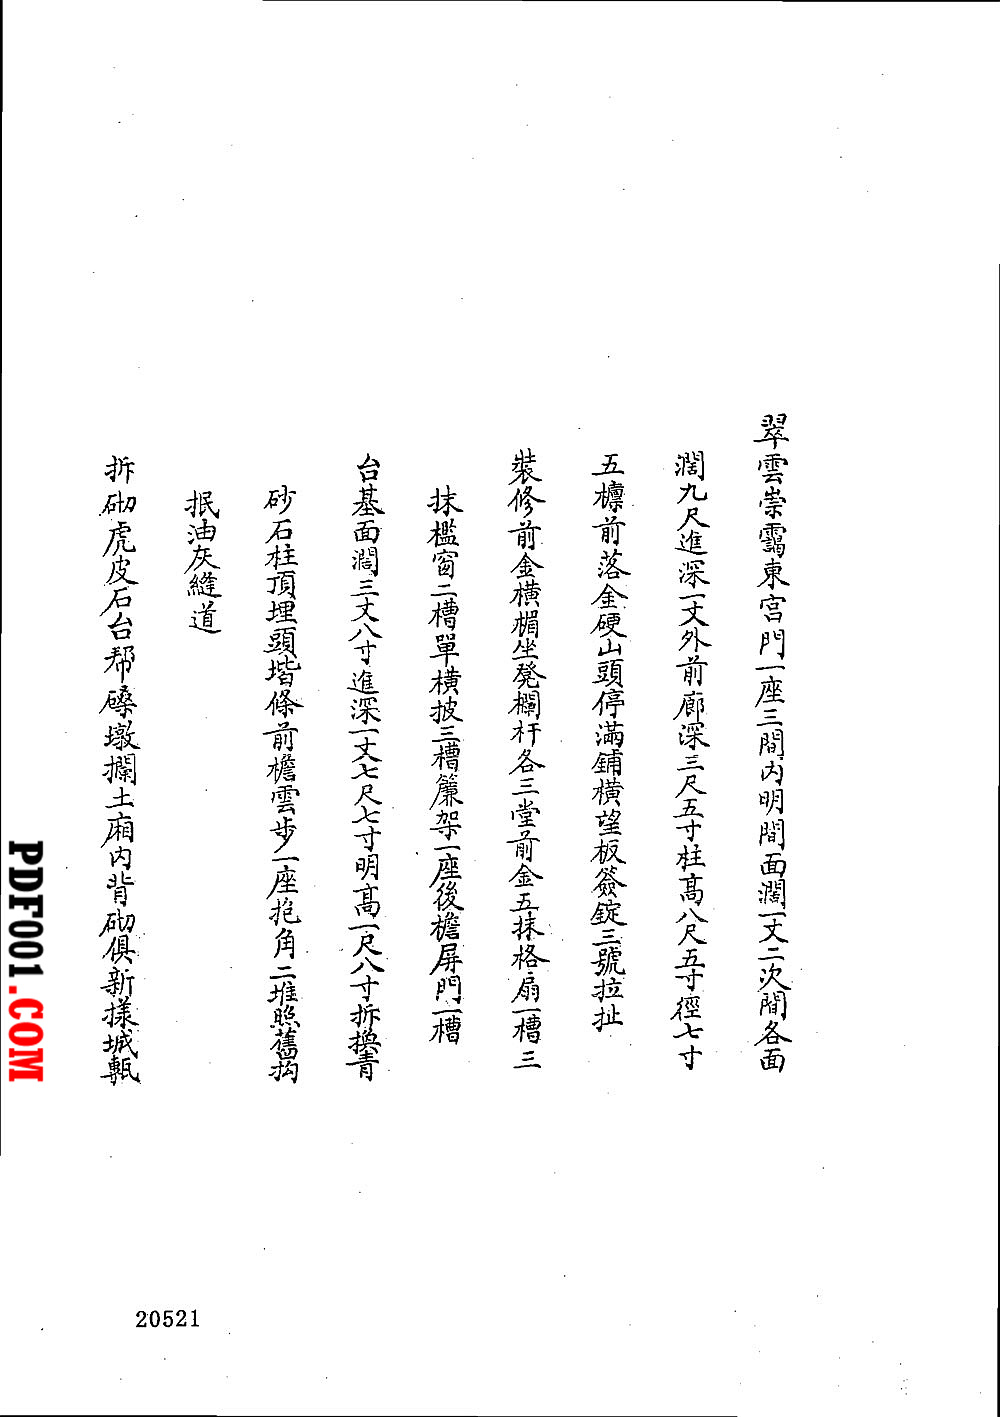 翠雲崇靄東宮門一座三間內明間面濶一丈二次間各面
濶九尺進深一丈外前廊深三尺五寸柱高八尺五寸徑七寸
五檁前落金硬山頭停滿鋪橫望板簽錠三號拉扯
裝修前金橫楣坐凳欄杆各三堂前金五抹格扇一槽三
抹檻窗二槽單橫披三槽簾架一座後檐屏門一槽
台基面濶三丈八寸進深一丈七尺七寸明高一尺八寸拆換青
砂石柱頂埋頭堦條前檐雲步一座抱角二堆照舊抅
抿油灰縫道
拆砌虎皮石台帮磉墩攔土廂內背砌俱新樣城甎
PDF001.COM
20521